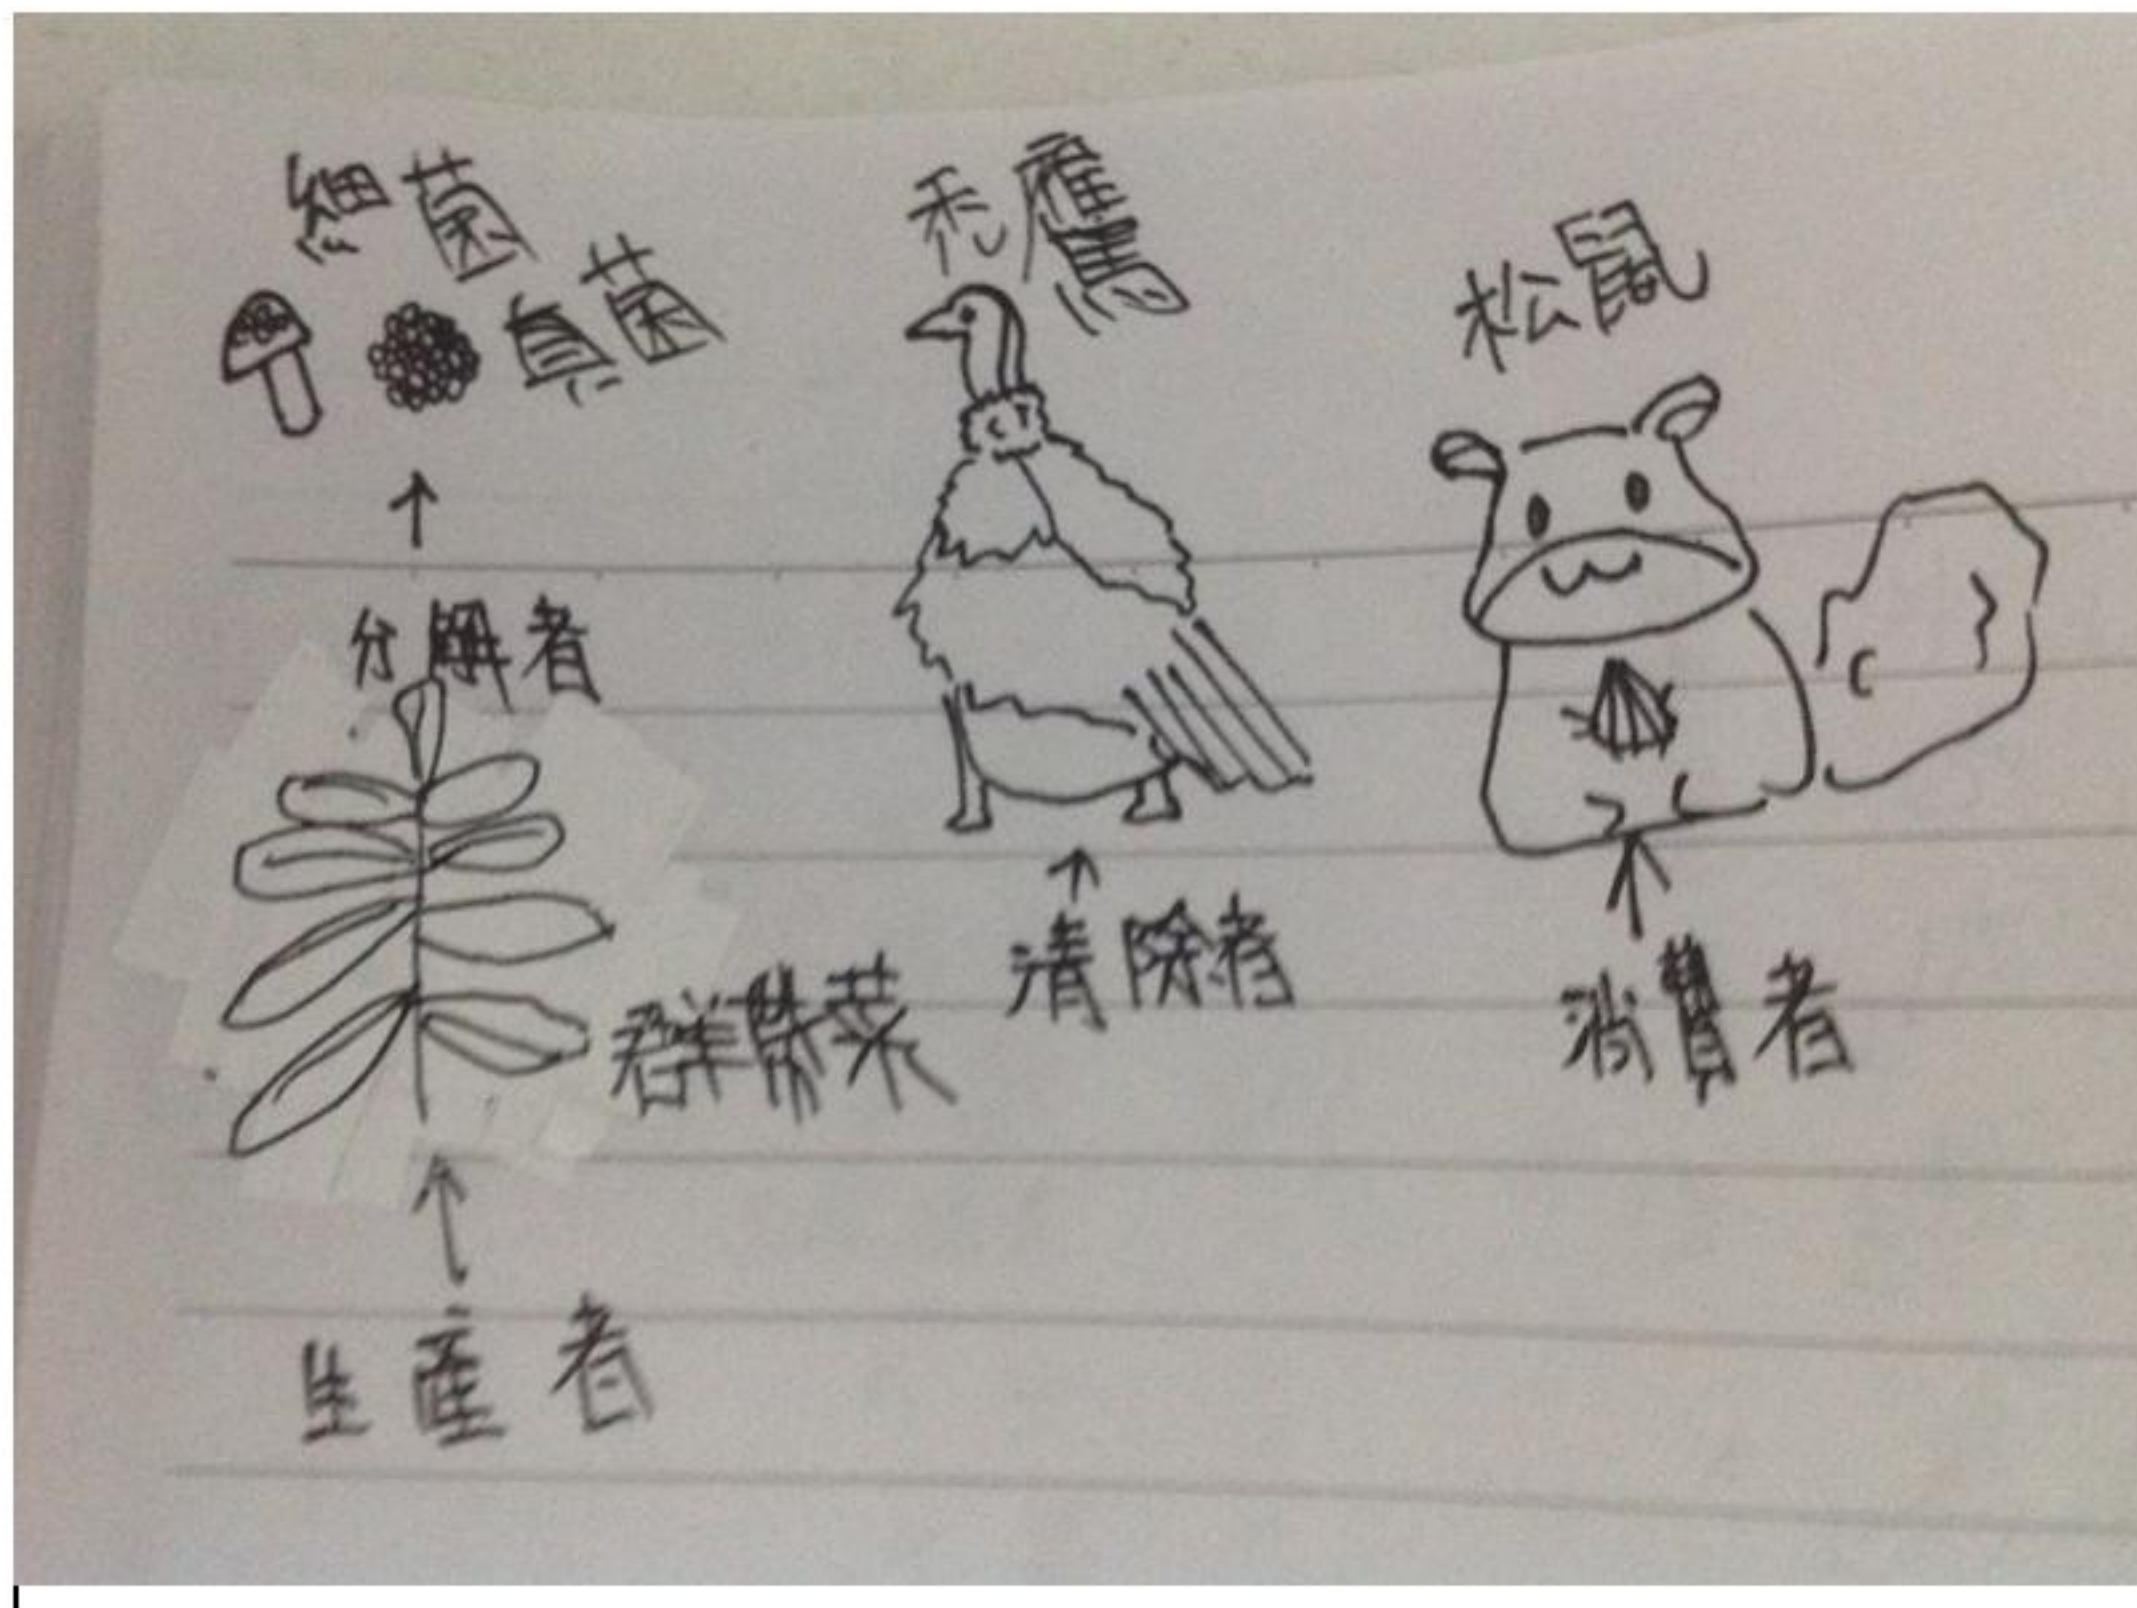 細菌
真菌
禿鷹
松鼠
分解者
清除者
消費者
生產者